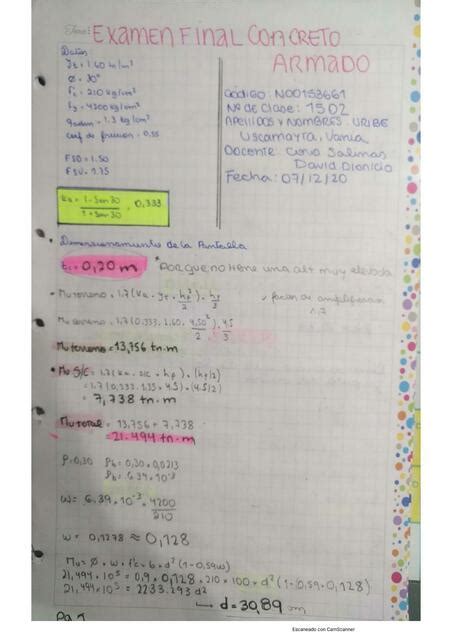 EXAMEN FINAL CONCRETO
ARMADO
Datos:
γt = 1.60 tn/m³
Ø = 30°
f'c = 210 kg/cm²
fy = 4200 kg/cm²
coef de friccion = 0,55
FSD = 1.50
FSV = 1.75
Código: N00153661
Nº de Clase: 1502
Apellidos y Nombres: URIBE
Uscamayta, Vania
Docente: Corvo Salinas
David Dionicio
Fecha: 07/12/20
Ka = 1 - Sen 30 / 1 + Sen 30 = 0,333
• Dimensionamiento de la Pantalla
t1 = 0,20 m * Porque no tiene una alt muy elevada
• Mu terreno = 1.7 (Ka . γt . hp²/2) . hp/3
factor de amplificacion
1.7
Mu terreno = 1.7 (0.333 . 1,60 . 4,50²/2) . 4.5/3
Mu terreno = 13,756 tn.m
• Mu S/C = 1.7 (Ka . S/C . hp) . (hp/2)
= 1.7 (0,333 . 1.35 . 4.5) . (4.5/2)
= 7,738 tn.m
Mu total = 13,756 + 7,738
= 21.494 tn.m
ρ = 0,30 ρb = 0,30 . 0,0213
ρb = 6.39 . 10⁻³
W = 6.39 . 10⁻³ . 4200/210
W = 0,1278 ≈ 0,128
Mu = Ø . w . f'c . b . d² (1 - 0,59w)
21,494 . 10⁵ = 0,9 . 0,128 . 210 . 100 . d² (1 - 0.59 . 0,128)
21,494 . 10⁵ = 2233.293 d²
↳ d = 30,89 cm
Pg 1
Escaneado con CamScanner